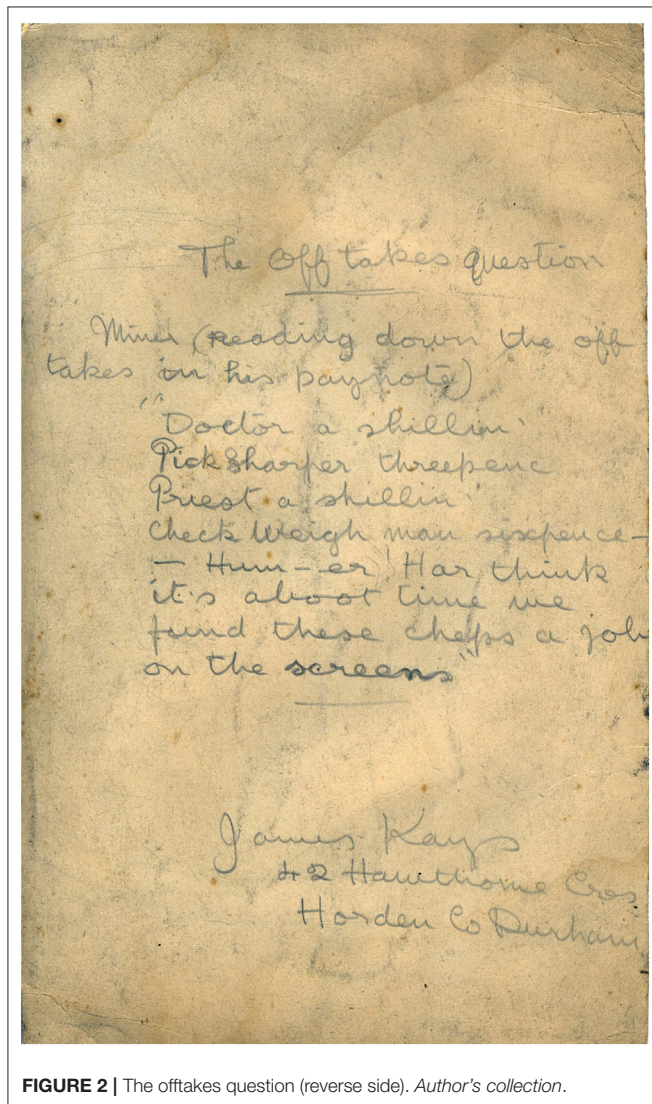 The Off takes question
Miner (reading down the off
takes in his paynote)
"Doctor a shillin'
Pick Sharper threepenc
Priest a shillin'
Check Weigh man sixpence –
– Hum–er Har think
it's aboot time we
fund these cheps a job
on the screens"
James Kays
42 Hawthorne Cres
Horden Co Durham
FIGURE 2 | The offtakes question (reverse side). Author's collection.